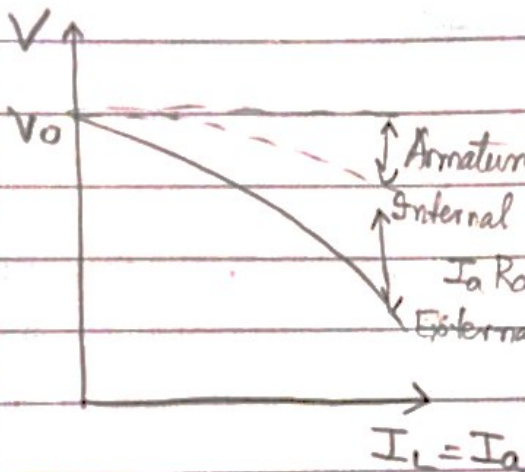 V
V₀
Armatur
Internal
Iₐ Rₐ
Externa
I_L = Iₐ